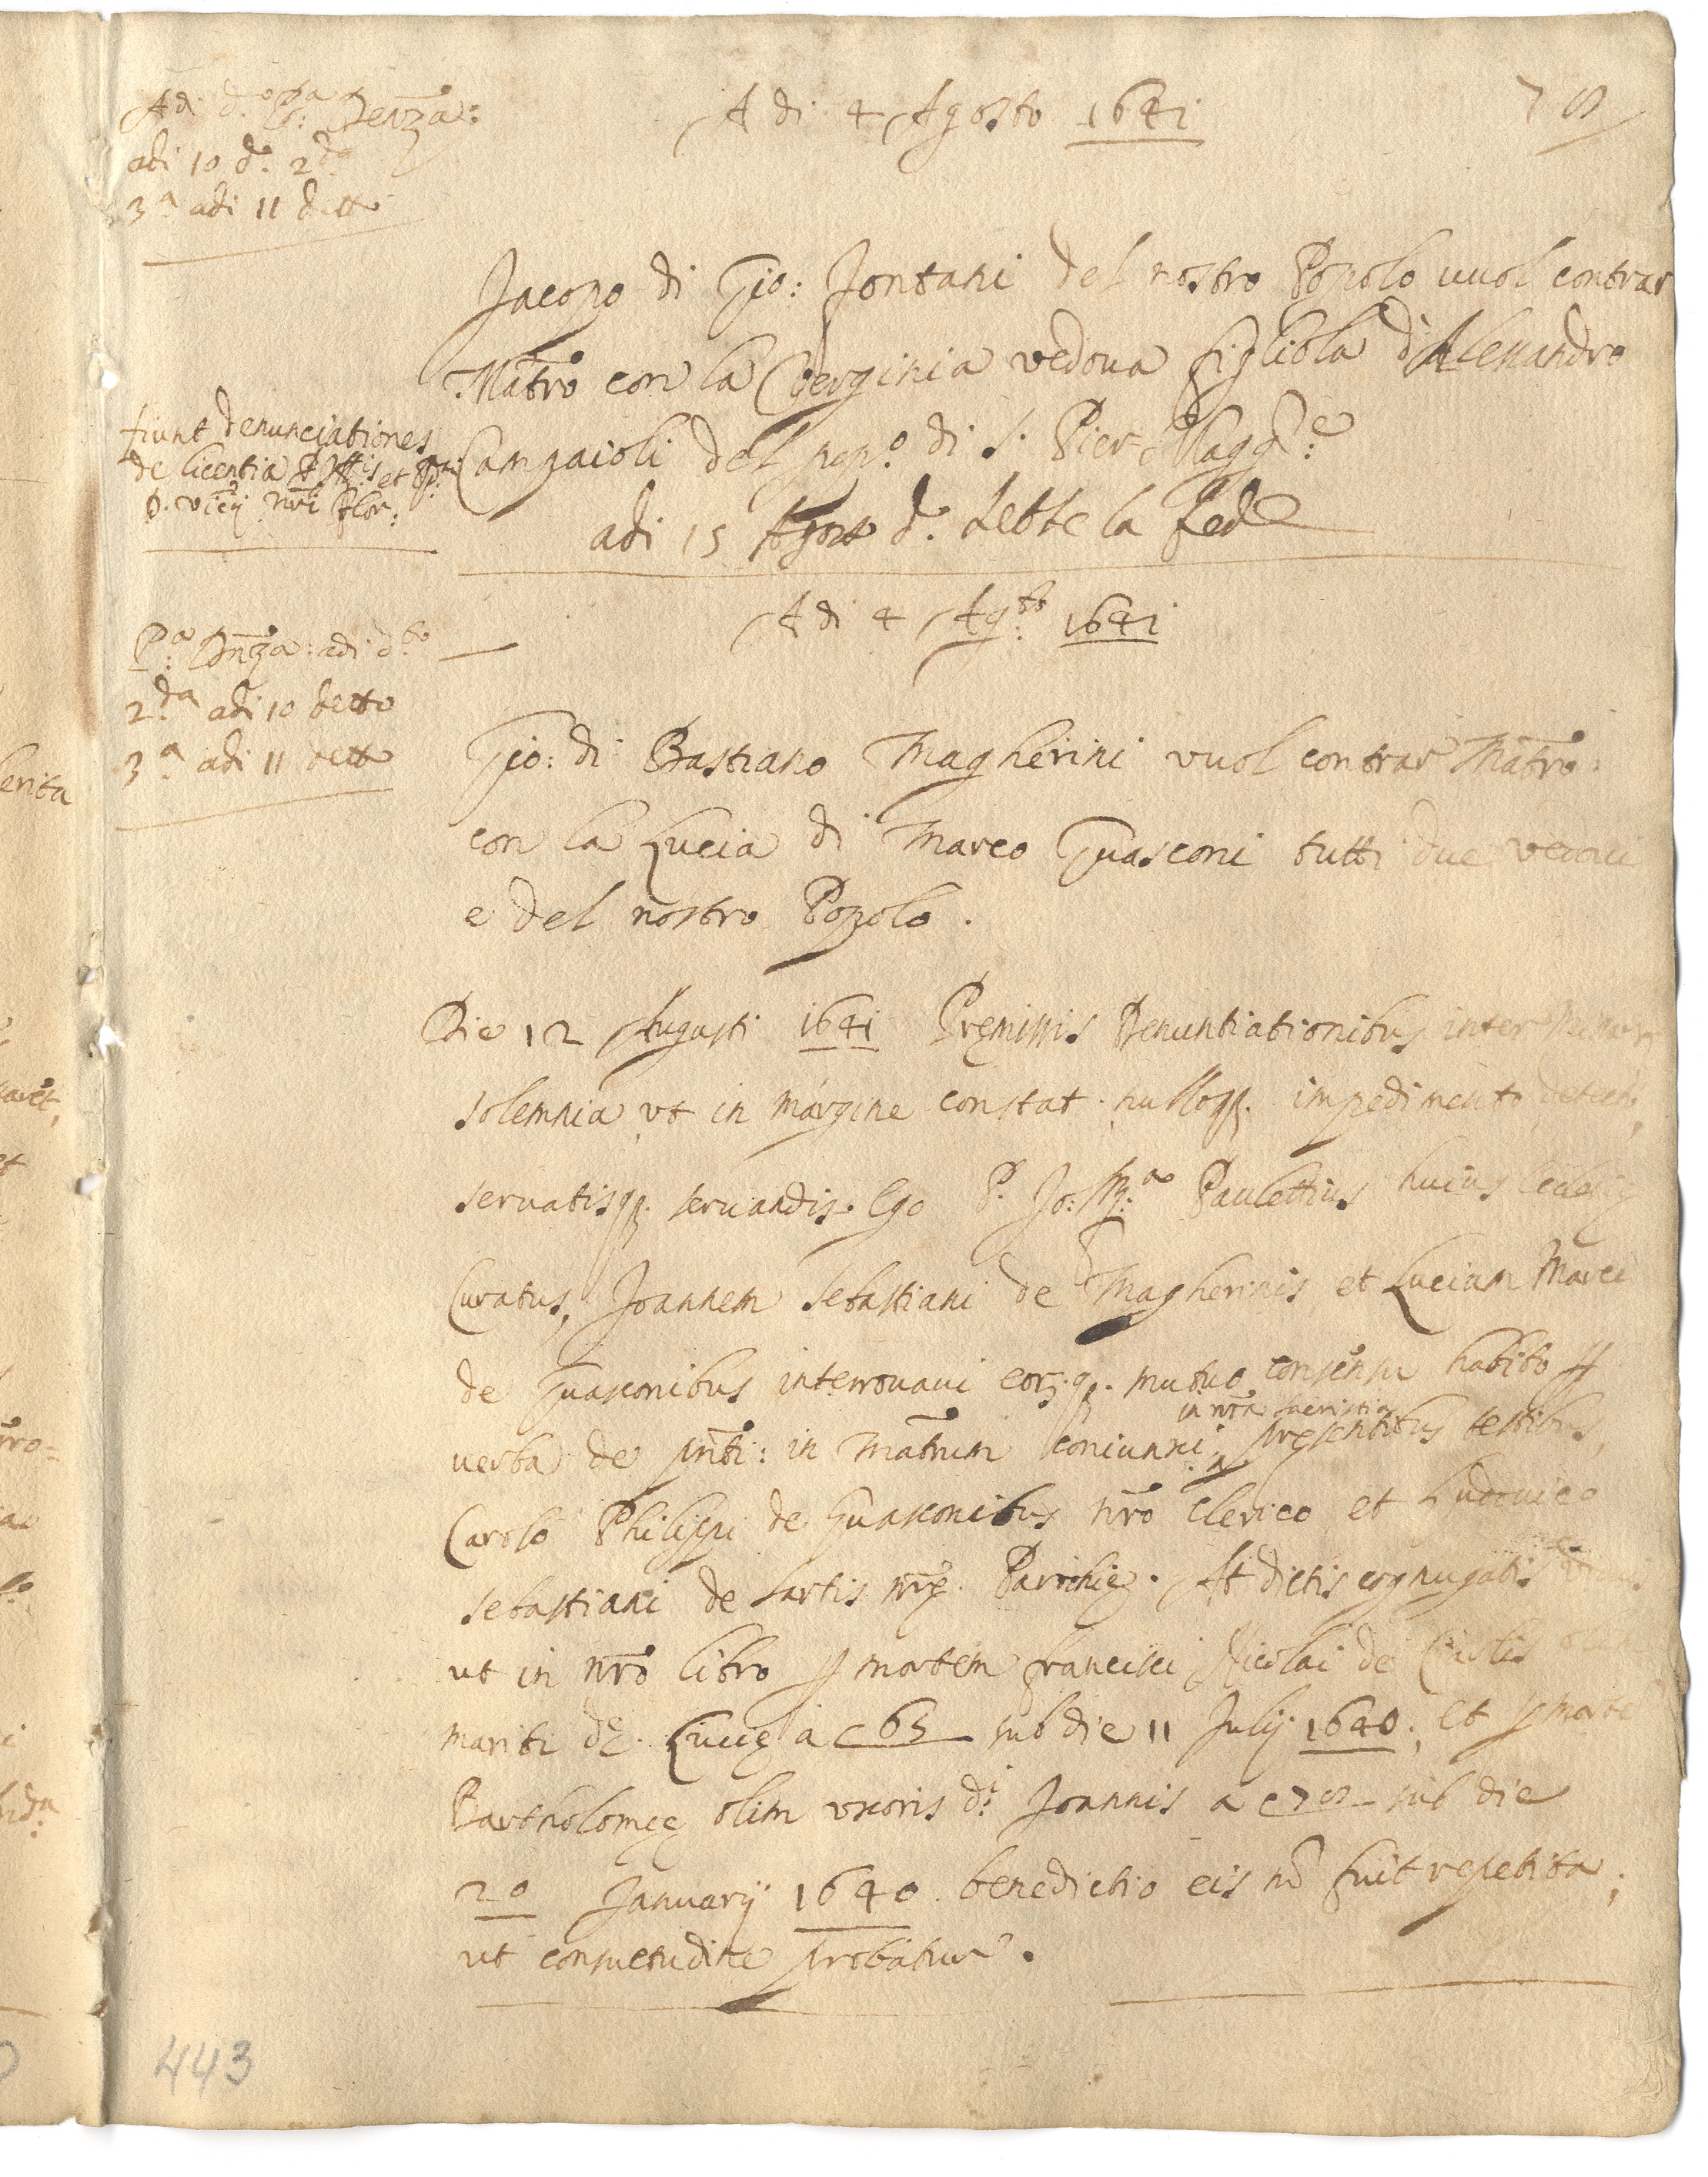 A di 4 Agosto 1641
Adi d.o P.a Denza:
adi 10 d.o 2.da
3.a adi 11 detto
Jacopo di Gio: Fontani del nostro Popolo vuol contrar
Matro con la Verginia vedova figliola d'Alessandro
Campaioli del pop.o di S. Pier Magg.e
adi 15 Agosto d.o dette la fede
fiunt denunciationes
de licentia et
D. Vicij nri Flor:
A di 4 Ag.to 1641
P.a Dnza: adi d.to
2.da adi 10 detto
3.a adi 11 detto
Gio: di Bastiano Magherini vuol contrar Matro:
con la Lucia di Marco Guasconi tutti due vedovi
e del nostro Popolo.
Die 12 Augusti 1641 Pręmissis Denuntiationibus inter
solemnia ut in margine constat. nulloq. impedimento detecto,
servatisq. servandis. Ego P. Jo: M.a Paulettius huius Ecclesię
Curatus, Joannem Sebastiani de Magherinis, et Luciam Marci
de Guasconibus interrogavi eor.q. mutuo consensu habito p
verba de pnti: in Matrim coniunxi in nra sacristia pręsentibus testibus,
Carolo Philippi de Guasconibus nro Clerico et Ludovico
Sebastiani de Sartis nrę Parochię. At dictis coniugatis
ut in nro libro p mortem francisci Nicolai de
mariti dę. Lucię a c 65 sub die 11 Julij 1640; et p morte
Bartholomęę olim uxoris d.i Joannis a c 72 sub die
20 Januarij 1640 benedictio eis nō fuit repetita;
ut consuetudine probatur.
443